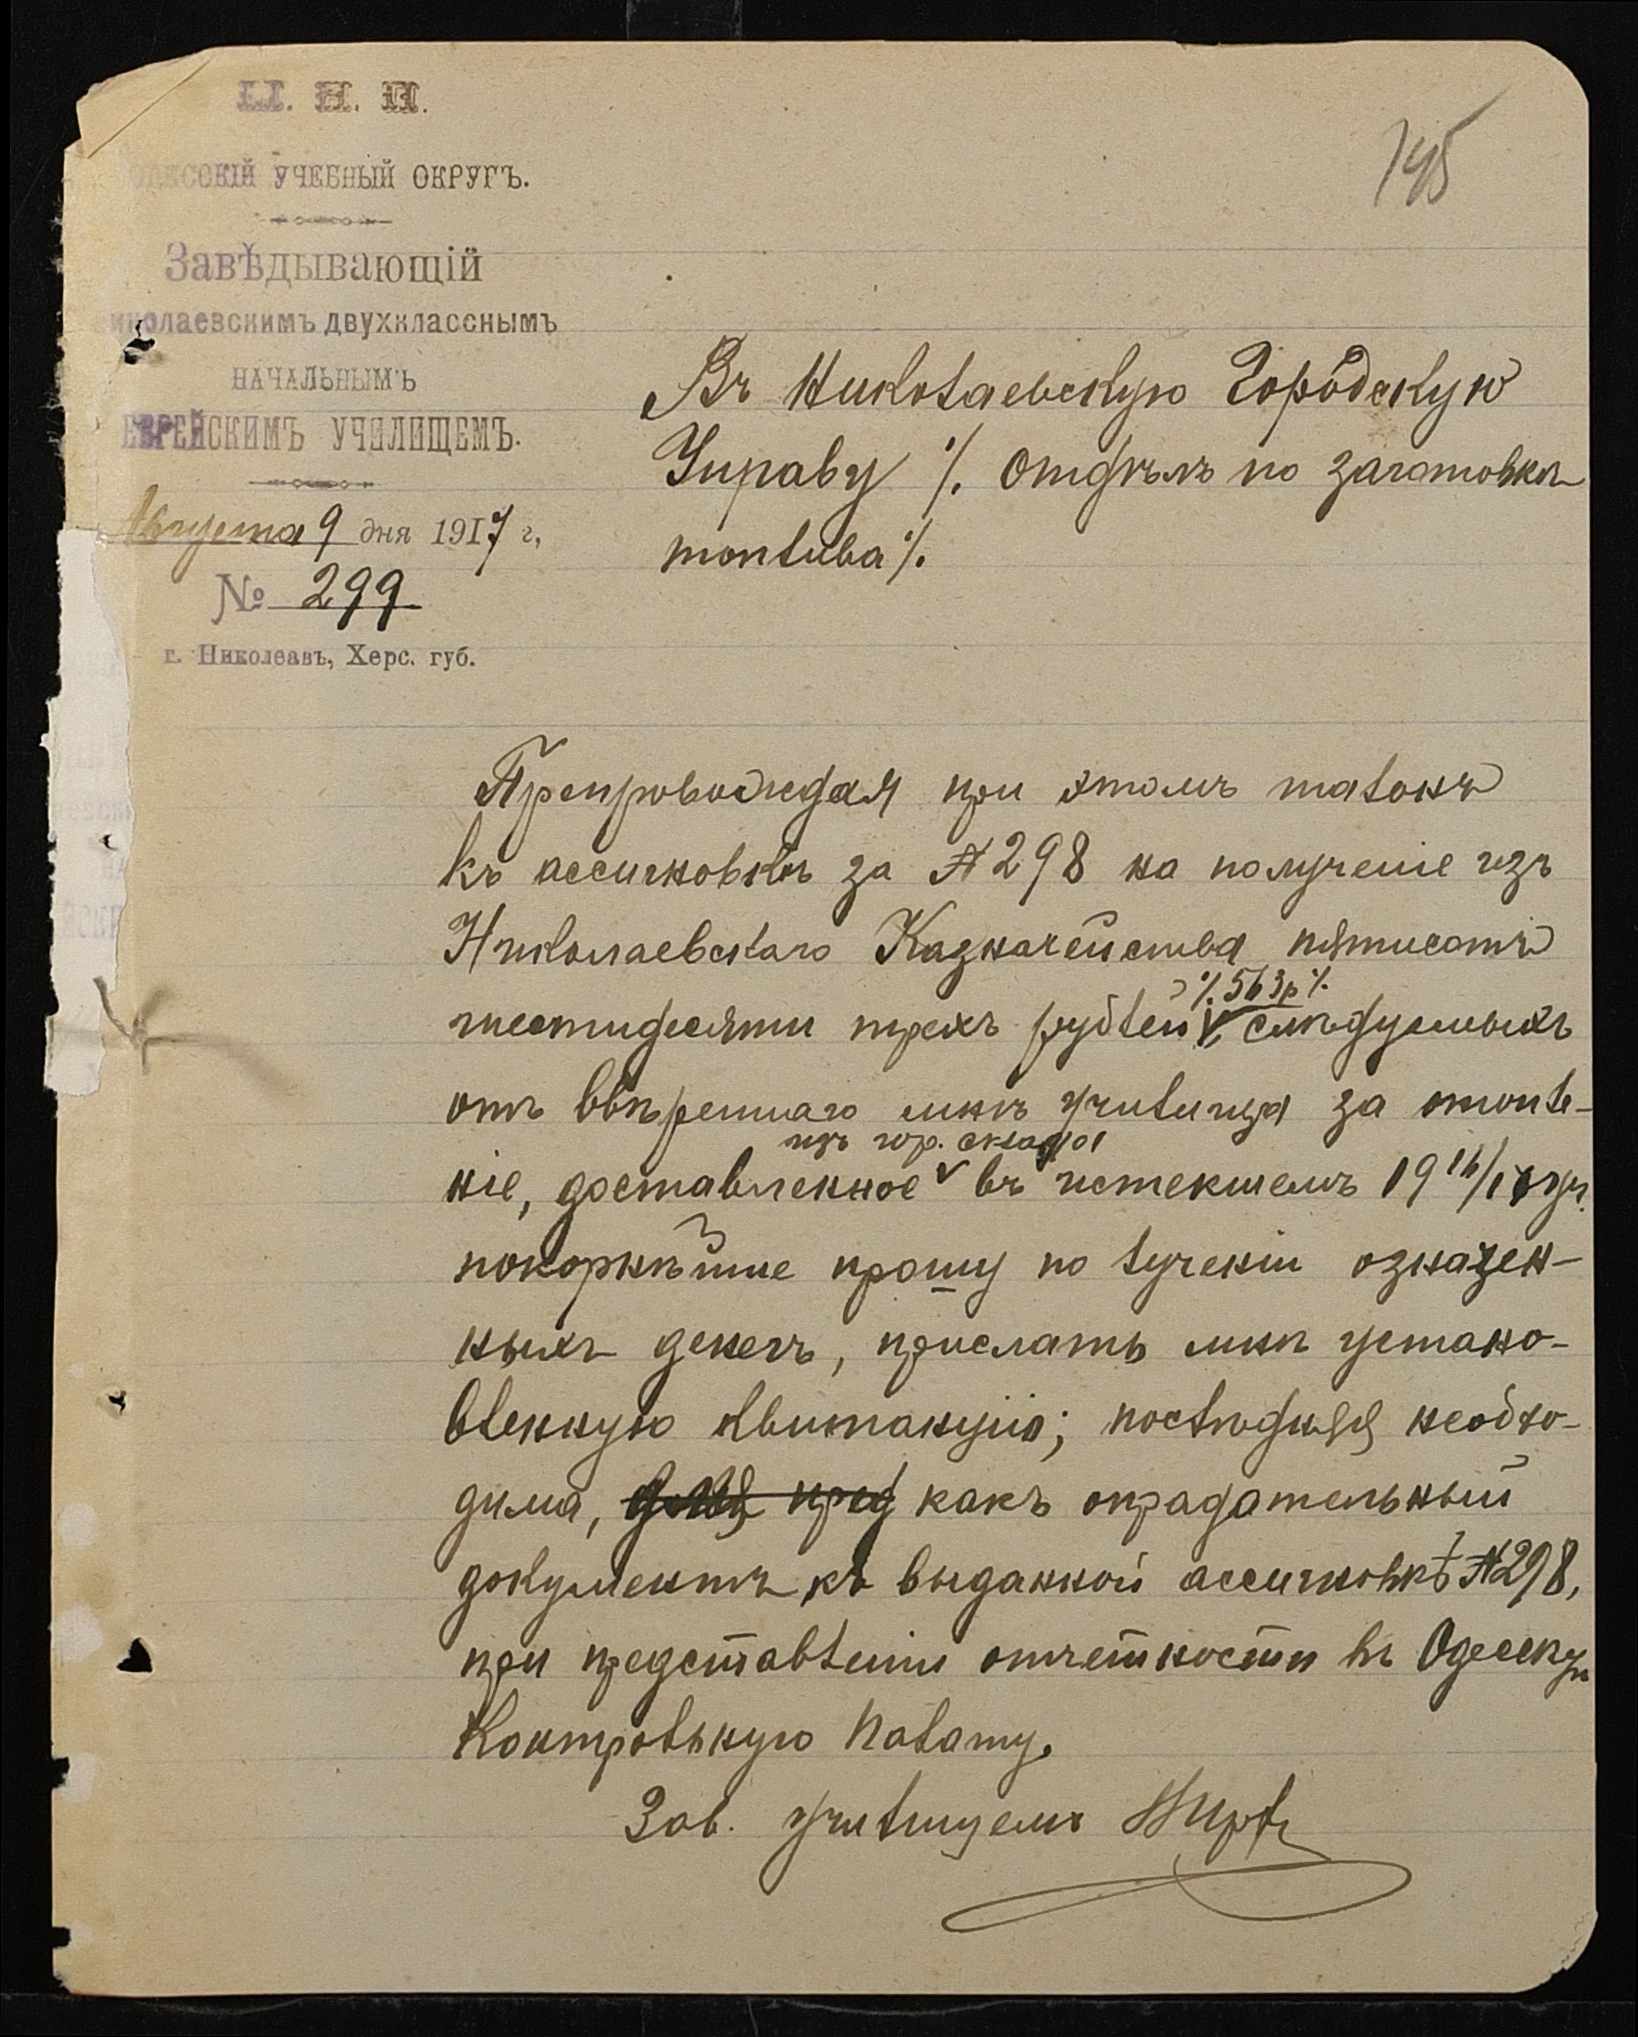 Ц. Н. П.
145
ОДЕССКІЙ УЧЕБНЫЙ ОКРУГЪ.
Завѣдывающій
Николаевскимъ двухкласснымъ
НАЧАЛЬНЫМЪ
ЕВРЕЙСКИМЪ УЧИЛИЩЕМЪ.
Августа 9 дня 1917 г,
№ 299
г. Николеавъ, Херс. губ.
Въ Николаевскую Городскую
Управу ٪ Отдѣлъ по заготовкѣ
топлива ٪.
Препровождая при этомъ талонъ
къ ассигновкѣ за № 298 на полученіе изъ
Николаевскаго Казначейства пятисотъ
٪ 563р ٪
шестидесяти трехъ рублей, слѣдуемыхъ
отъ ввѣреннаго мнѣ училища за отопле-
изъ гор. склада
ніе, доставленное въ истекшемъ 19 16/17 уч.
покорнѣйше прошу по лученіи означен-
ныхъ денегъ, прислать мнѣ устано-
вленную квитанцію; послѣдняя необхо-
дима, для пред какъ оправдательный
документъ къ выданной ассигновкѣ № 298,
при представленіи отчетности въ Одесскую
Контрольную Палату.
Зав. училищемъ